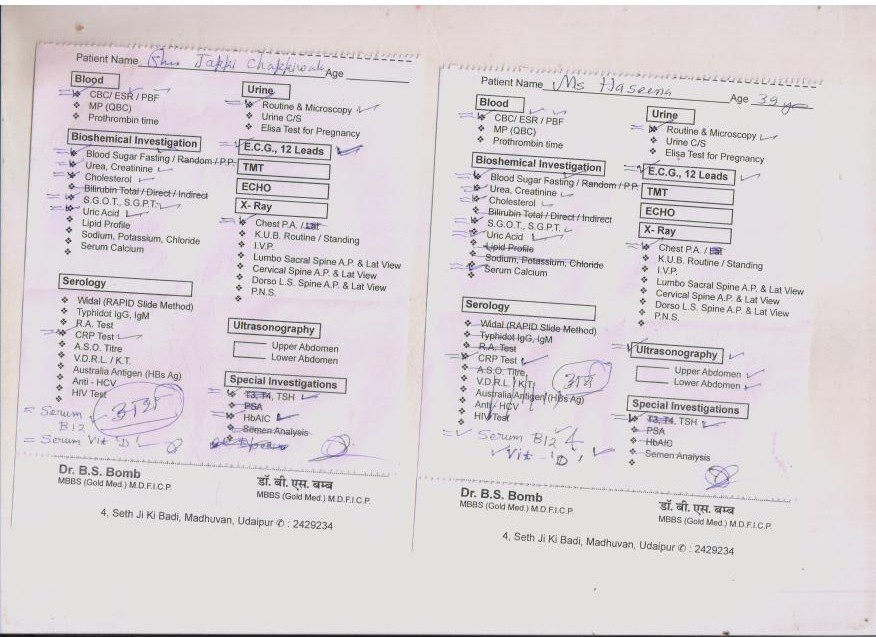 Patient Name Jakki Chakkiwala Age
Blood
CBC/ ESR / PBF
MP (QBC)
Prothrombin time
Bioshemical Investigation
Blood Sugar Fasting / Random / P.P.
Urea, Creatinine
Cholesterol
Bilirubin Total / Direct / Indirect
S.G.O.T., S.G.P.T.
Uric Acid
Lipid Profile
Sodium, Potassium, Chloride
Serum Calcium
Serology
Widal (RAPID Slide Method)
Typhidot IgG, IgM
R.A. Test
CRP Test
A.S.O. Titre
V.D.R.L. / K.T.
Australia Antigen (HBs Ag)
Anti - HCV
HIV Test
Serum B12
Serum Vit 'D'
Urine
Routine & Microscopy
Urine C/S
Elisa Test for Pregnancy
E.C.G., 12 Leads
TMT
ECHO
X- Ray
Chest P.A. / Lat
K.U.B. Routine / Standing
I.V.P.
Lumbo Sacral Spine A.P. & Lat View
Cervical Spine A.P. & Lat View
Dorso L.S. Spine A.P. & Lat View
P.N.S.
Ultrasonography
Upper Abdomen
Lower Abdomen
Special Investigations
T3, T4, TSH
PSA
HbAIC
Semen Analysis
Dr. B.S. Bomb
MBBS (Gold Med.) M.D.F.I.C.P.
डॉ. बी. एस. बम्ब
MBBS (Gold Med.) M.D.F.I.C.P.
4, Seth Ji Ki Badi, Madhuvan, Udaipur ✆ : 2429234
Patient Name Ms Haseena Age 39 yr
Blood
CBC/ ESR / PBF
MP (QBC)
Prothrombin time
Bioshemical Investigation
Blood Sugar Fasting / Random / P.P.
Urea, Creatinine
Cholesterol
Bilirubin Total / Direct / Indirect
S.G.O.T., S.G.P.T.
Uric Acid
Lipid Profile
Sodium, Potassium, Chloride
Serum Calcium
Serology
Widal (RAPID Slide Method)
Typhidot IgG, IgM
R.A. Test
CRP Test
A.S.O. Titre
V.D.R.L. / K.T.
Australia Antigen (HBs Ag)
Anti - HCV
HIV Test
Serum B12
Vit - 'D'
Urine
Routine & Microscopy
Urine C/S
Elisa Test for Pregnancy
E.C.G., 12 Leads
TMT
ECHO
X- Ray
Chest P.A. / Lat
K.U.B. Routine / Standing
I.V.P.
Lumbo Sacral Spine A.P. & Lat View
Cervical Spine A.P. & Lat View
Dorso L.S. Spine A.P. & Lat View
P.N.S.
Ultrasonography
Upper Abdomen
Lower Abdomen
Special Investigations
T3, T4, TSH
PSA
HbAIC
Semen Analysis
Dr. B.S. Bomb
MBBS (Gold Med.) M.D.F.I.C.P.
डॉ. बी. एस. बम्ब
MBBS (Gold Med.) M.D.F.I.C.P.
4, Seth Ji Ki Badi, Madhuvan, Udaipur ✆ : 2429234